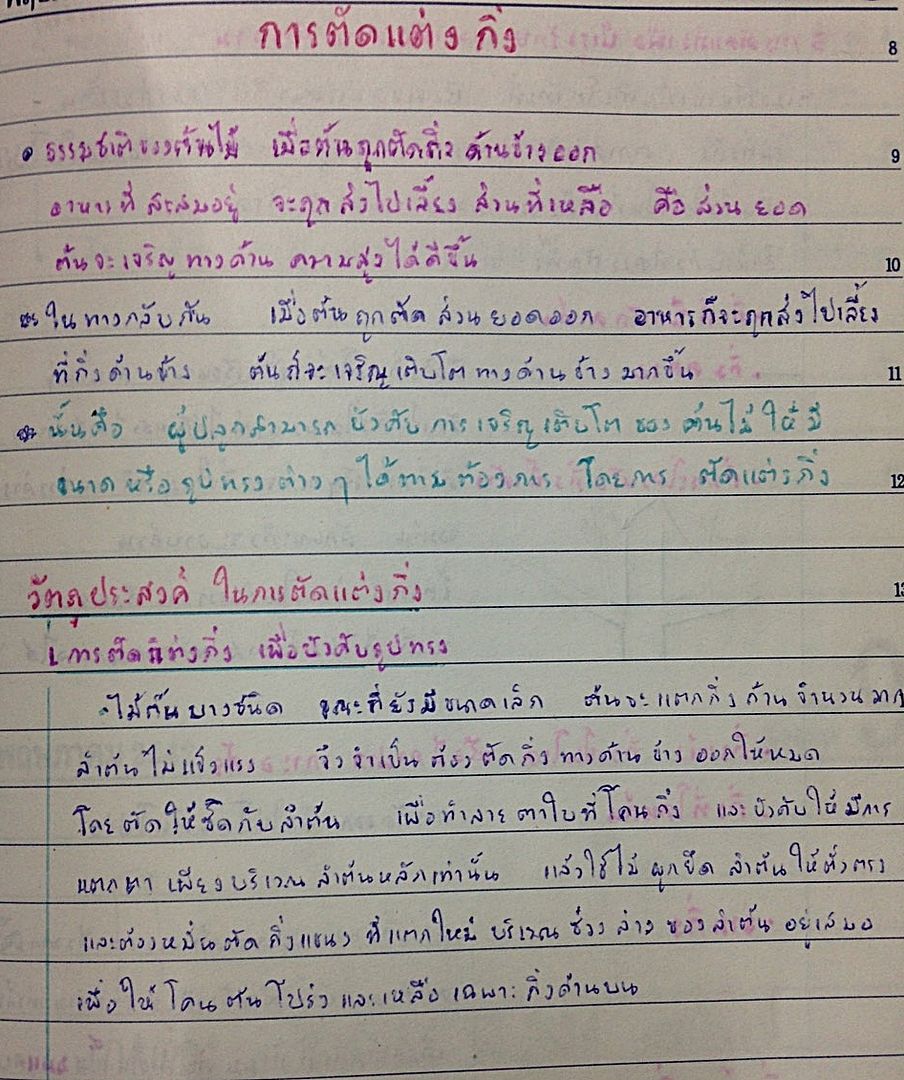 การตัดแต่งกิ่ง
8
• ธรรมชาติของต้นไม้ เมื่อต้นถูกตัดกิ่งด้านข้างออก
9
อาหารที่สะสมอยู่ จะถูกส่งไปเลี้ยง ส่วนที่เหลือ คือส่วนยอด
ต้นจะเจริญทางด้าน ความสูงได้ดีขึ้น
10
ในทางกลับกัน เมื่อต้นถูกตัดส่วนยอดออก อาหารก็จะถูกส่งไปเลี้ยง
ที่กิ่งด้านข้าง ต้นก็จะเจริญเติบโตทางด้านข้างมากขึ้น
11
นั้นคือ ผู้ปลูกสามารถบังคับการเจริญเติบโตของต้นไม้ให้มี
ขนาดหรือรูปทรงต่างๆได้ตามต้องการ โดยการ ตัดแต่งกิ่ง
12
วัตถุประสงค์ ในการตัดแต่งกิ่ง
13
1. การตัดแต่งกิ่ง เพื่อบังคับรูปทรง
ไม้ต้นบางชนิด ขณะที่ยังมีขนาดเล็ก ต้นจะแตกกิ่งก้านจำนวนมาก
ลำต้นไม่แข็งแรง จึงจำเป็นต้องตัดกิ่งทางด้านข้างออกให้หมด
โดยตัดให้ชิดกับลำต้น เพื่อทำลายตาใบที่โคนกิ่ง และบังคับให้มีการ
แตกตา เพียงบริเวณลำต้นหลักเท่านั้น แล้วใช้ไม้ผูกยึดลำต้นให้ตั้งตรง
และต้องหมั่นตัดกิ่งแขนงที่แตกใหม่บริเวณช่วงล่างของลำต้นอยู่เสมอ
เพื่อให้โคนต้นโปร่งและเหลือเฉพาะกิ่งด้านบน